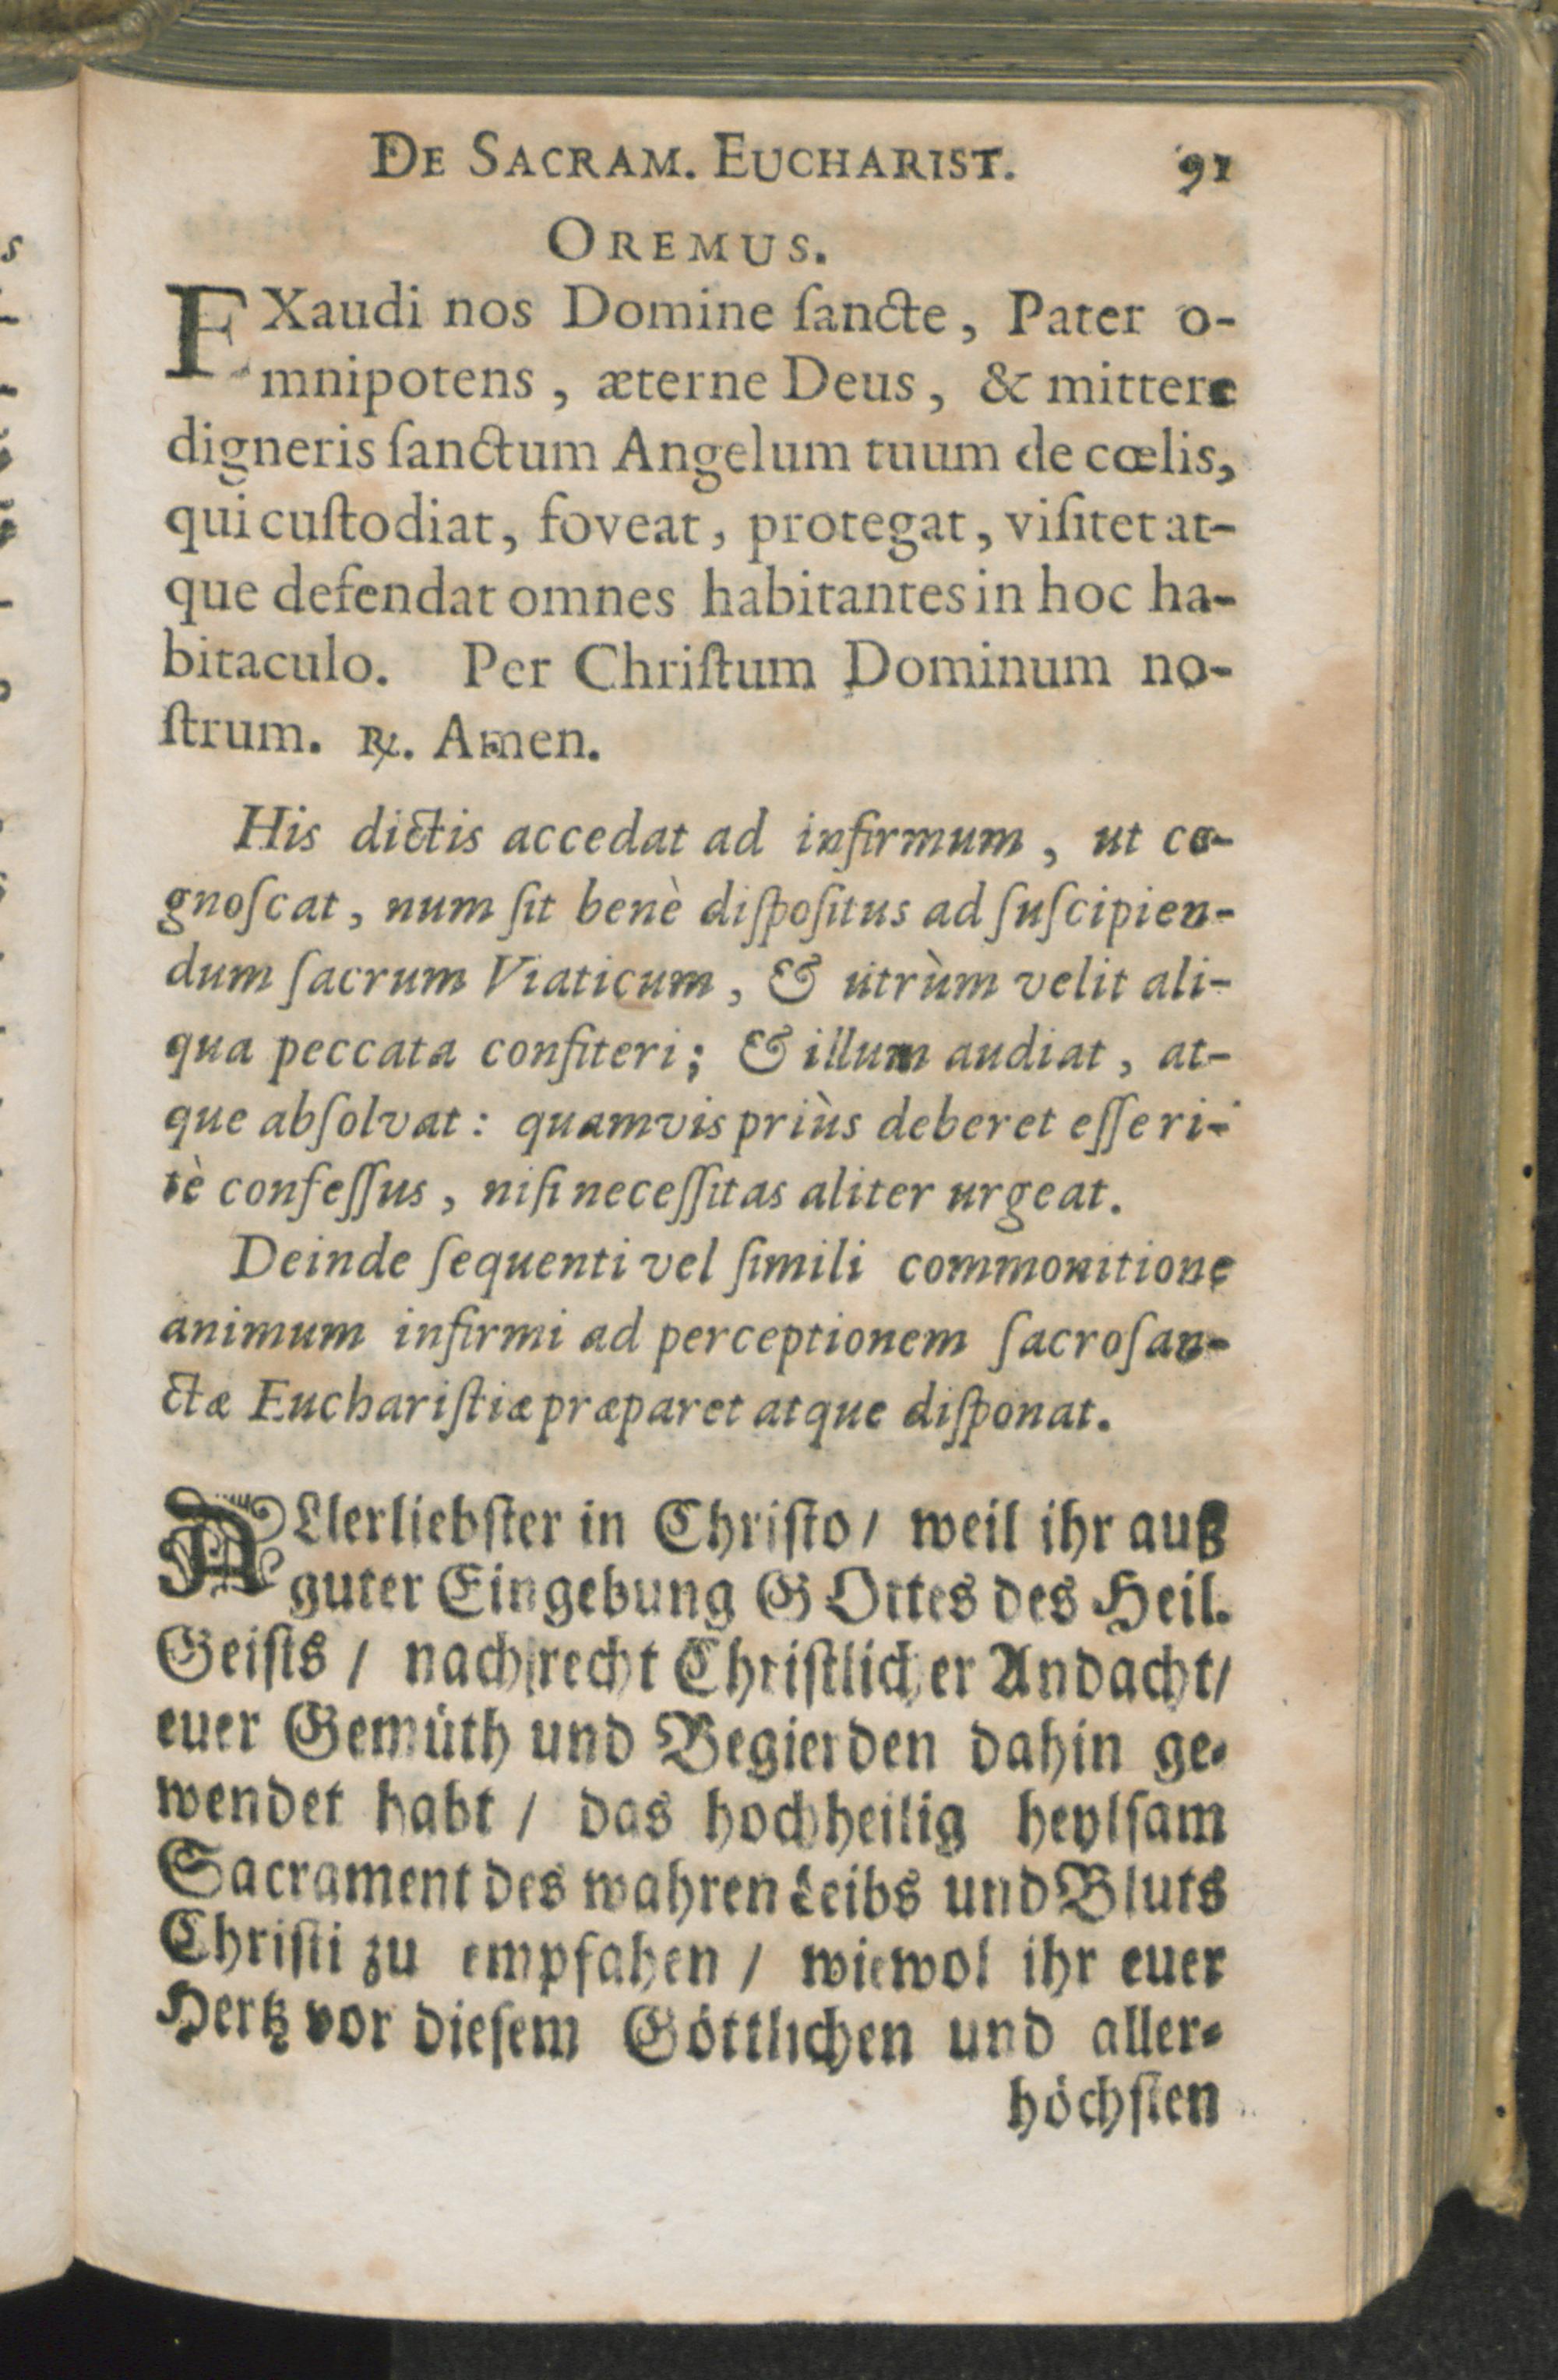 DE SACRAM. EUCHARIST. 91
OREMUS.
EXaudi nos Domine ſancte, Pater o-
mnipotens, æterne Deus, & mittere
digneris ſanctum Angelum tuum de cœlis,
qui cuſtodiat, foveat, protegat, viſitet at-
que defendat omnes habitantes in hoc ha-
bitaculo. Per Chriſtum Dominum no-
ſtrum. ℞. Amen.
His dictis accedat ad infirmum, ut co-
gnoſcat, num ſit benè diſpoſitus ad ſuſcipien-
dum ſacrum Viaticum, & utrùm velit ali-
qua peccata confiteri; & illum audiat, at-
que abſolvat: quamvis priùs deberet eſſe ri-
tè confeſſus, niſi neceſſitas aliter urgeat.
Deinde ſequenti vel ſimili commonitione
animum infirmi ad perceptionem ſacroſan-
ctæ Euchariſtiæ præparet atque diſponat.
ALlerliebſter in Chriſto / weil ihr auß
guter Eingebung GOttes des Heil.
Geiſts / nach recht Chriſtlicher Andacht /
euer Gemüth und Begierden dahin ge-
wendet habt / das hochheilig heylſam
Sacrament des wahren Leibs und Bluts
Chriſti zu empfahen / wiewol ihr euer
Hertz vor dieſem Göttlichen und aller-
höchſten